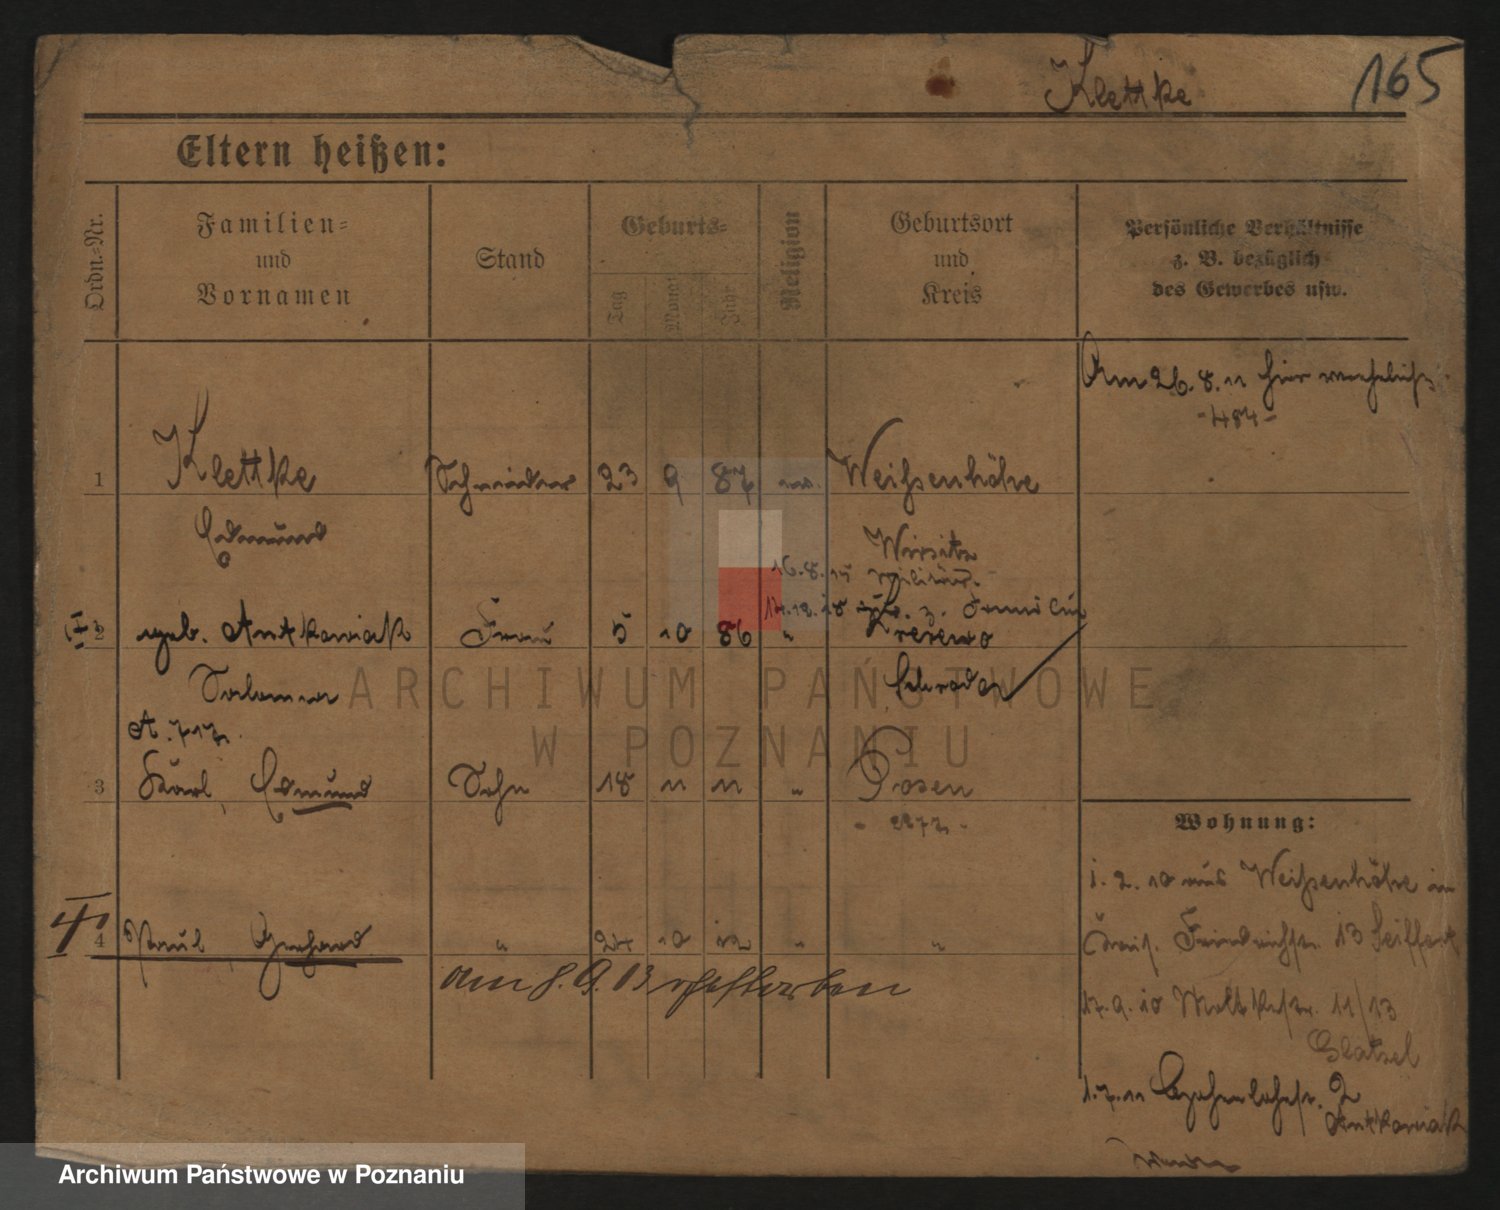 Klettke 165
Eltern heißen:
Ordn.-Nr.
Familien-
und
Vornamen
Stand
Geburts-
Tag
Monat
Jahr
Religion
Geburtsort
und
Kreis
Persönliche Verhältnisse
z. B. bezüglich
des Gewerbes usw.
Am 26. 8. 11 hier verehelicht
-484-
1 Klettke Schneider 23 9 87 ev. Weißenhöhe
Edmund Wirsitz
16.8.15 Militär.
17.12.18 z. Familie
2 geb. Antkowiak Frau 5 10 86 " 
Salomea Schroda
A. 717.
3 Karl, Edmund Sohn 18 11 11 " Posen
- 2272 -
Wohnung:
1. 2. 10 aus Weißenhöhe in
Friedrichstr. 13 Seiffert
4 Paul Gerhard " 24 10 12 " "
am 8. 9. 13 gestorben
17. 9. 10 Moltkestr. 11/13
Glatzel
1. 7. 11 2
Antkowiak
Archiwum Państwowe
w Poznaniu
Archiwum Państwowe w Poznaniu